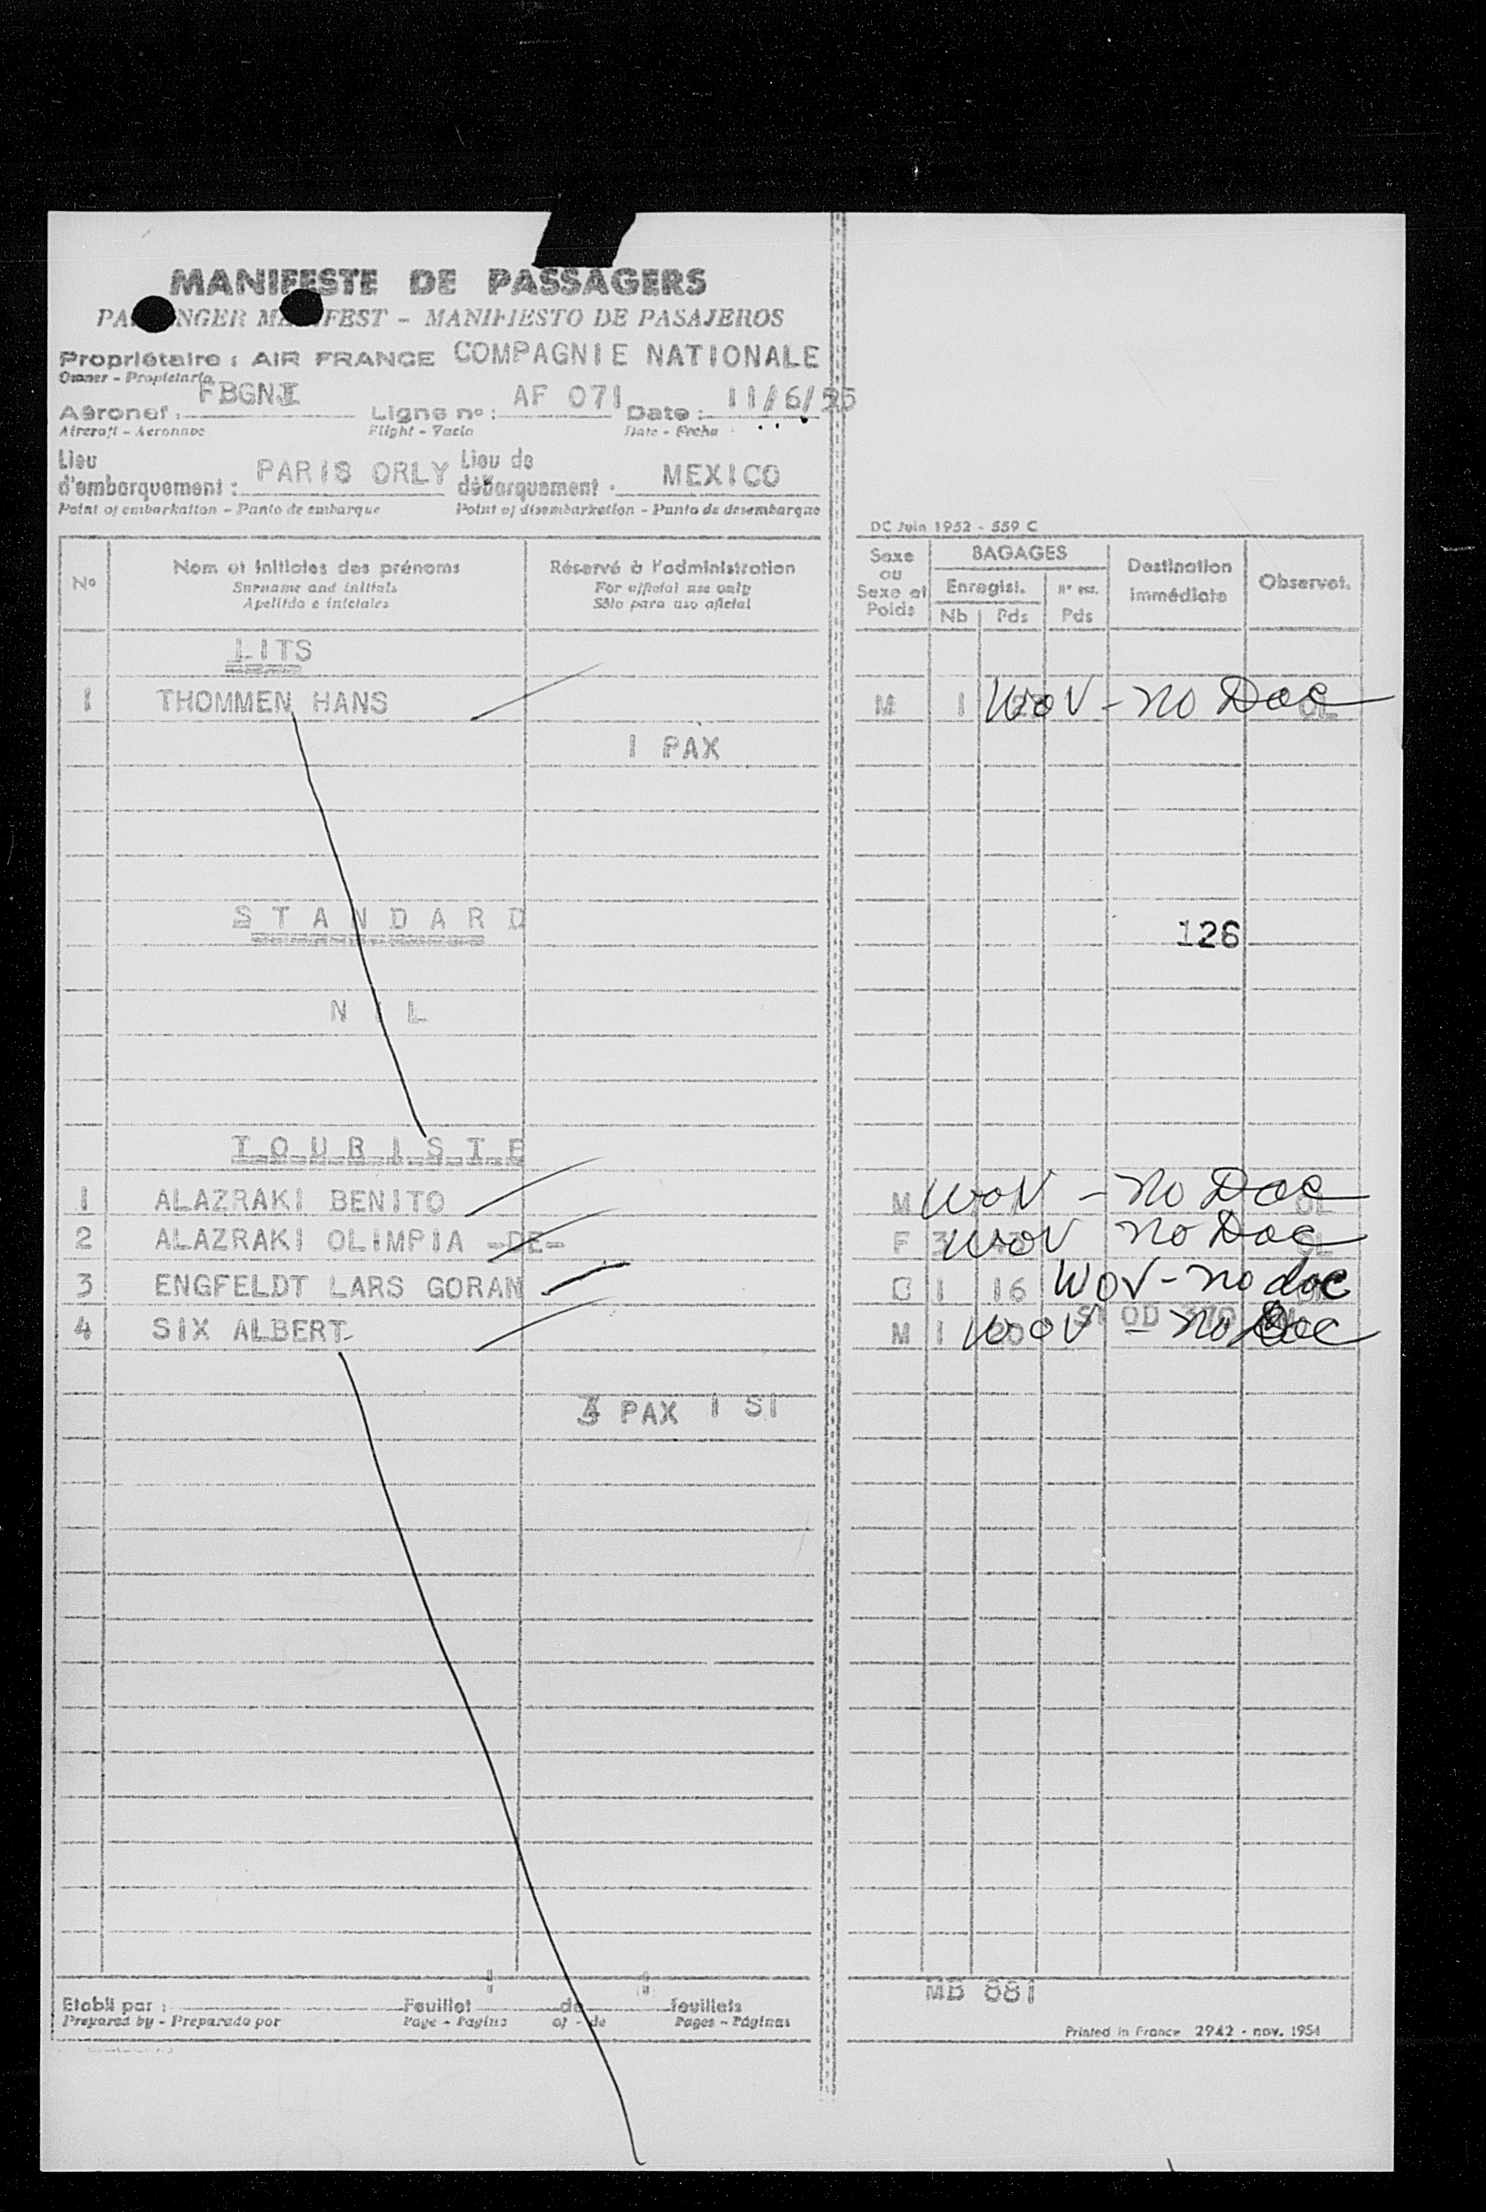 MANIFESTE DE PASSAGERS
MANIFIESTO DE PASAJEROS
Propriétaire : AIR FRANCE COMPAGNIE NATIONALE
Owner - Propietario
Aéronef : FBGNI Ligne nº : AF 071 Date : 11/6/55
Aircraft - Aeronave Flight - Vuelo Date - Fecha
Lieu d'embarquement : PARIS ORLY Lieu de débarquement : MEXICO
Point of embarkation - Punto de embarque Point of disembarkation - Punto de desembarque
DC Juin 1952 - 559 C
Nº Nom et initiales des prénoms Réservé à l'administration Sexe ou Sexe et Poids BAGAGES Destination immédiate Observat.
Surname and initials For official use only Enregist. Nº enr.
Apellido e iniciales Sólo para uso oficial Nb Pds Pds
LITS
1 THOMMEN HANS M 1 WOV - no Doc OL
1 PAX
STANDARD
126
NIL
TOURISTE
1 ALAZRAKI BENITO M WOV - no Doc OL
2 ALAZRAKI OLIMPIA -DE- F 3 WOV no Doc OL
3 ENGFELDT LARS GORAN 1 16 WOV - no doc
OD 370
4 SIX ALBERT M 1 20 WOV - no Doc
3 PAX 1 SI
Etabli par : Feuillet 1 de 1 feuillets
Prepared by - Preparado por Page - Página of - de Pages - Páginas
MB 881
Printed in France 2942 - nov. 1954